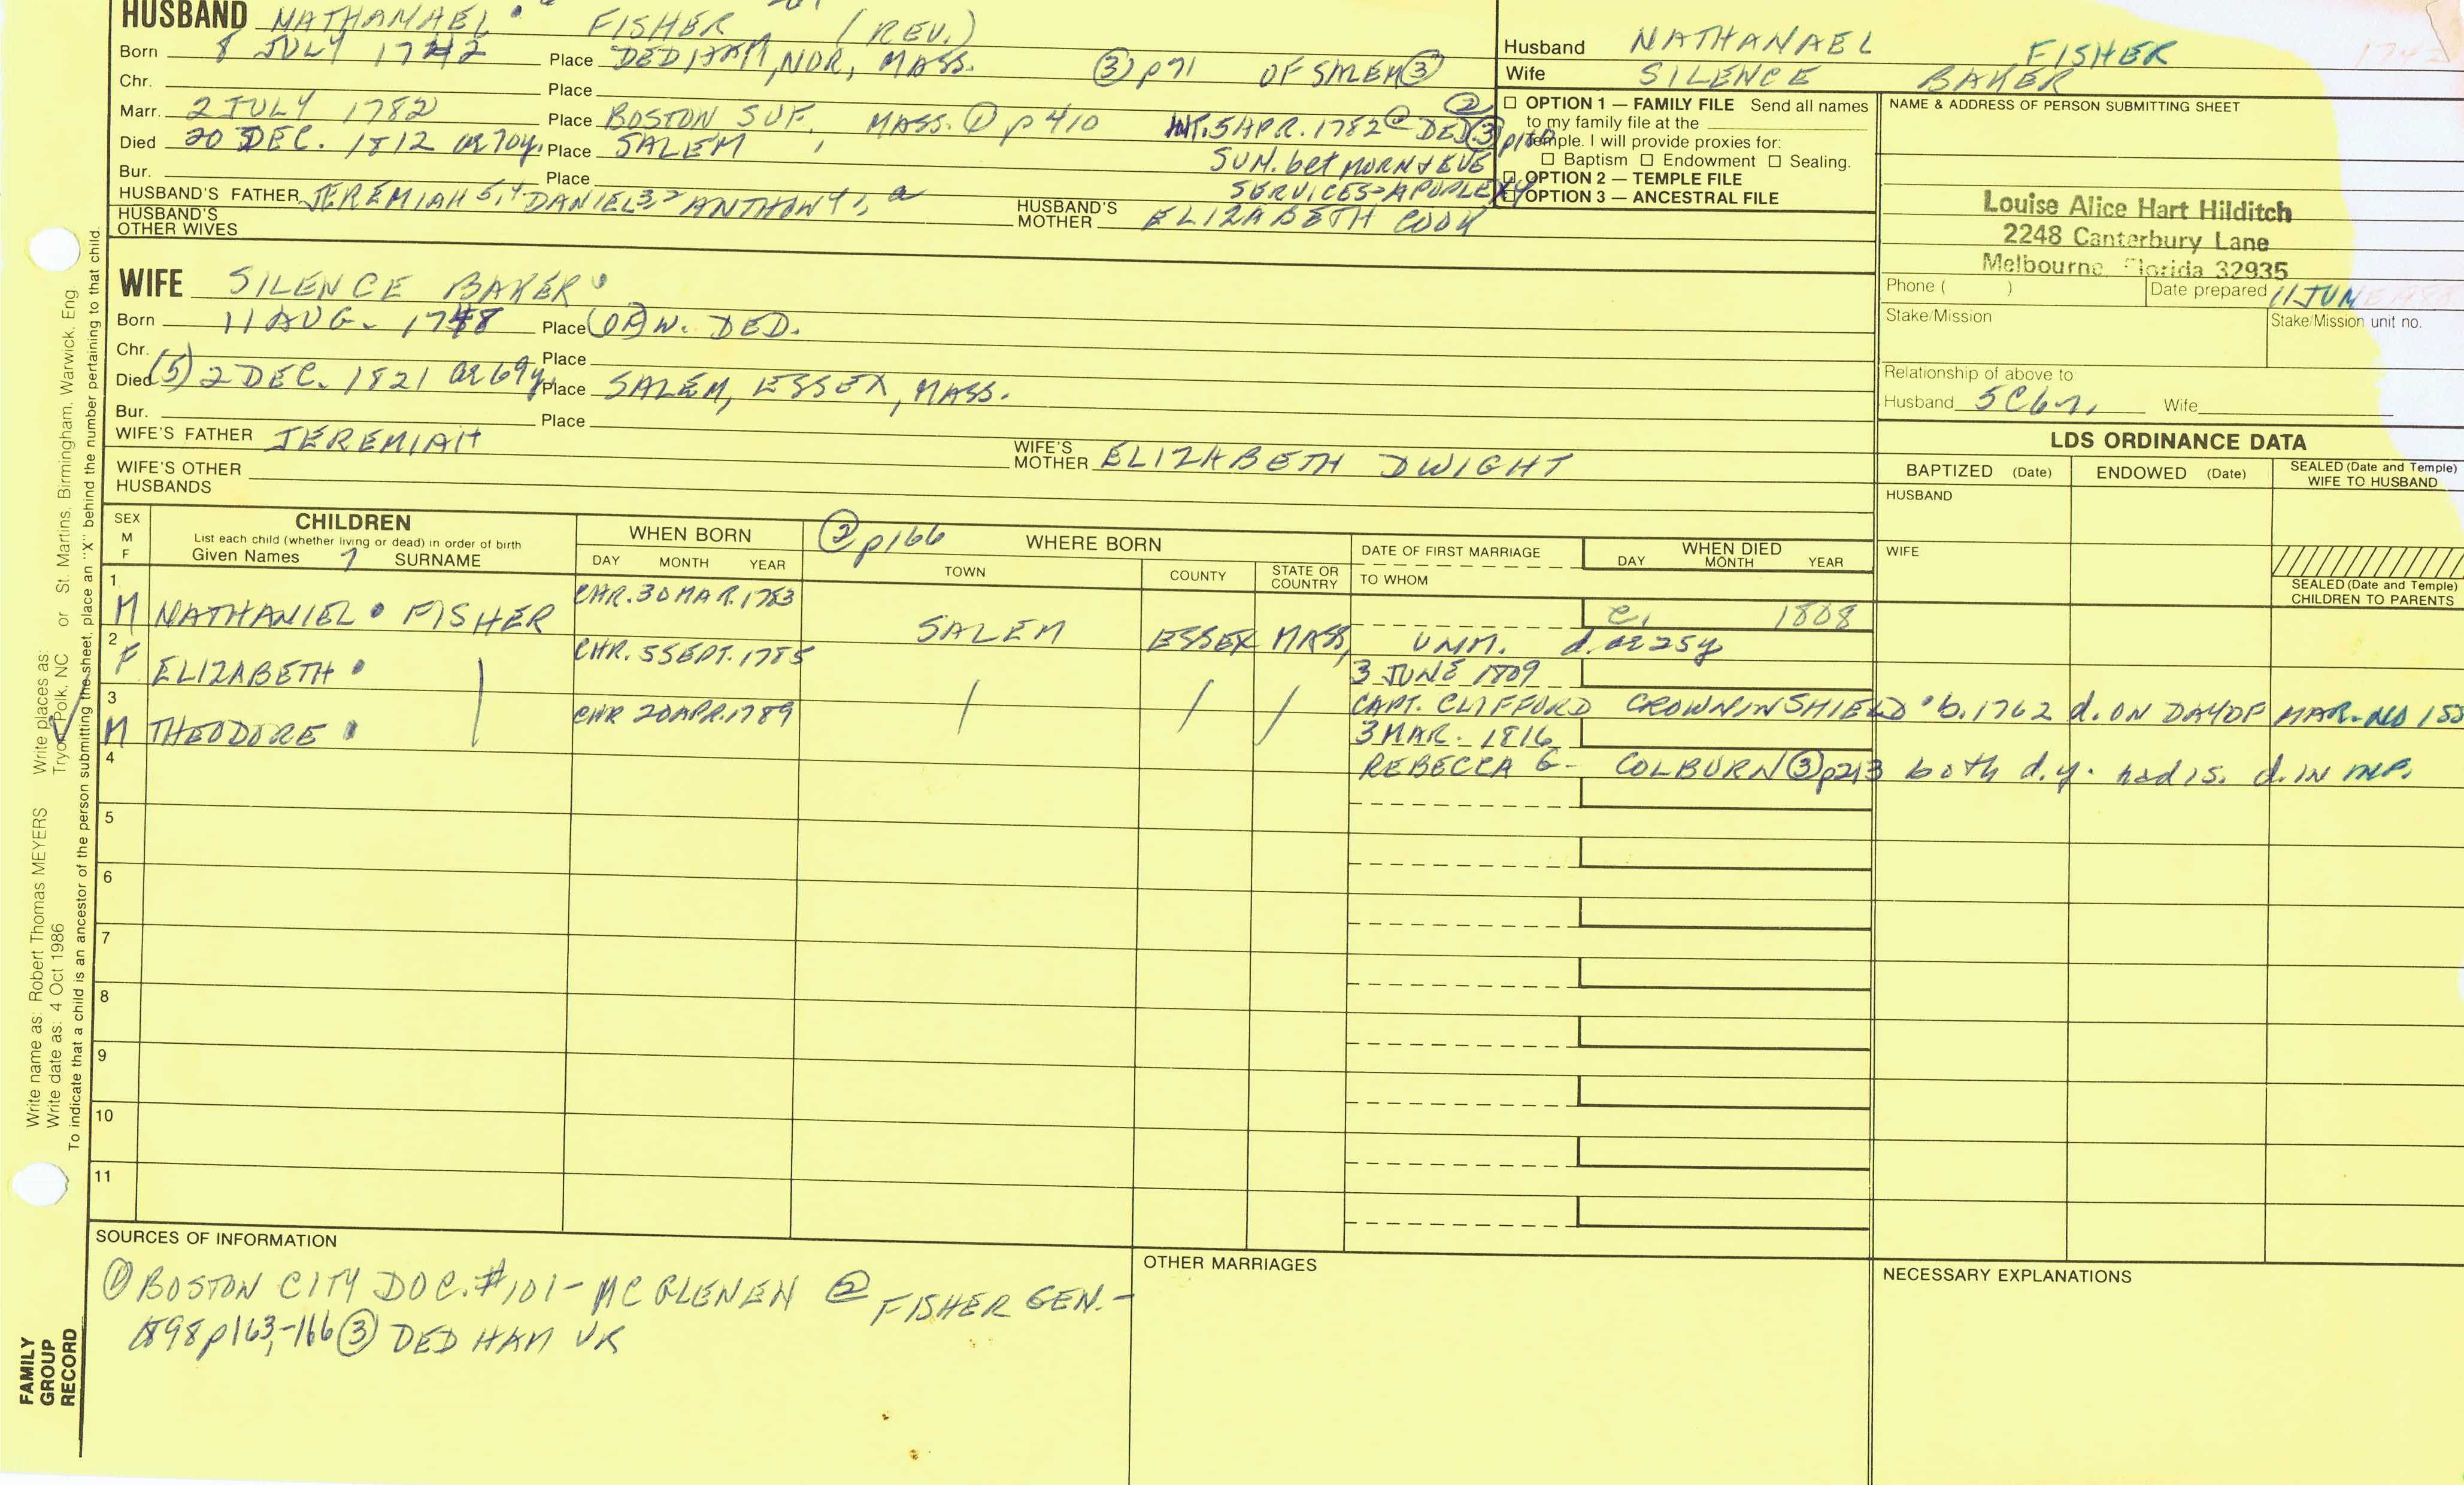 HUSBAND NATHANAEL FISHER (REV.)
Born 8 JULY 1742 Place DEDHAM, NOR, MASS. ③ p71 OF SALEM ③
Chr. Place
Marr. 2 JULY 1782 Place BOSTON SUF, MASS. ① p 410 INT. 5 APR. 1782 @ DED ③
Died 20 DEC. 1812 ae 70y. Place SALEM, SUN. bet MORN & EVE
Bur. Place SERVICES-APOPLEXY
HUSBAND'S FATHER JEREMIAH 5,4 DANIEL 3,2 ANTHONY 1, HUSBAND'S MOTHER ELIZABETH COOK
HUSBAND'S OTHER WIVES
Husband NATHANAEL FISHER
Wife SILENCE BAKER
OPTION 1 — FAMILY FILE Send all names
to my family file at the
temple. I will provide proxies for:
Baptism Endowment Sealing.
OPTION 2 — TEMPLE FILE
OPTION 3 — ANCESTRAL FILE
NAME & ADDRESS OF PERSON SUBMITTING SHEET
Louise Alice Hart Hilditch
2248 Canterbury Lane
Melbourne Florida 32935
Phone ( ) Date prepared 11 JUNE
Stake/Mission Stake/Mission unit no.
Relationship of above to:
Husband Wife
WIFE SILENCE BAKER
Born 11 AUG. 1748 Place (OR W. DED.
Chr. Place
Died (5) 2 DEC. 1821 ae 69y Place SALEM, ESSEX, MASS.
Bur. Place
WIFE'S FATHER JEREMIAH WIFE'S MOTHER ELIZABETH DWIGHT
WIFE'S OTHER HUSBANDS
LDS ORDINANCE DATA
BAPTIZED (Date) ENDOWED (Date) SEALED (Date and Temple) WIFE TO HUSBAND
HUSBAND
WIFE
SEALED (Date and Temple) CHILDREN TO PARENTS
SEX M F CHILDREN
List each child (whether living or dead) in order of birth
Given Names SURNAME
WHEN BORN DAY MONTH YEAR
② p166 WHERE BORN
TOWN COUNTY STATE OR COUNTRY
DATE OF FIRST MARRIAGE
TO WHOM
WHEN DIED DAY MONTH YEAR
1 M NATHANIEL FISHER CHR. 30 MAR. 1783 SALEM ESSEX MASS, UNM. d. ae 25y c. 1808
2 F ELIZABETH CHR. 5 SEPT. 1785 / / / 3 JUNE 1809
CAPT. CLIFFORD CROWNINSHIELD b. 1762 d. ON DAY OF MAR. - NO ISS
3 M THEODORE CHR 20 APR. 1789 3 MAR. 1816
REBECCA G. COLBURN ③ p213 both d.y. had is. d. IN
4
5
6
7
8
9
10
11
SOURCES OF INFORMATION
① BOSTON CITY DOC. #101 - MCGLENEN ② FISHER GEN. -
1898 p163,-166 ③ DEDHAM VR
OTHER MARRIAGES
NECESSARY EXPLANATIONS
Write name as: Robert Thomas MEYERS Write places as: Tryon, Polk, NC or St. Martins, Birmingham, Warwick, Eng
Write date as: 4 Oct 1986
To indicate that a child is an ancestor of the person submitting the sheet, place an "X" behind the number pertaining to that child.
FAMILY GROUP RECORD